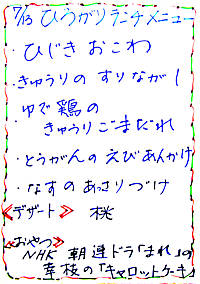 7/13 ひうがりランチメニュー
・ひじきおこわ
・きゅうりのすりながし
・ゆで鶏の
きゅうりごまだれ
・とうがんのえびあんかけ
・なすのあっさりづけ
≪デザート≫ 桃
≪おやつ≫
NHK 朝連ドラ「まれ」の
幸枝の「キャロットケーキ」